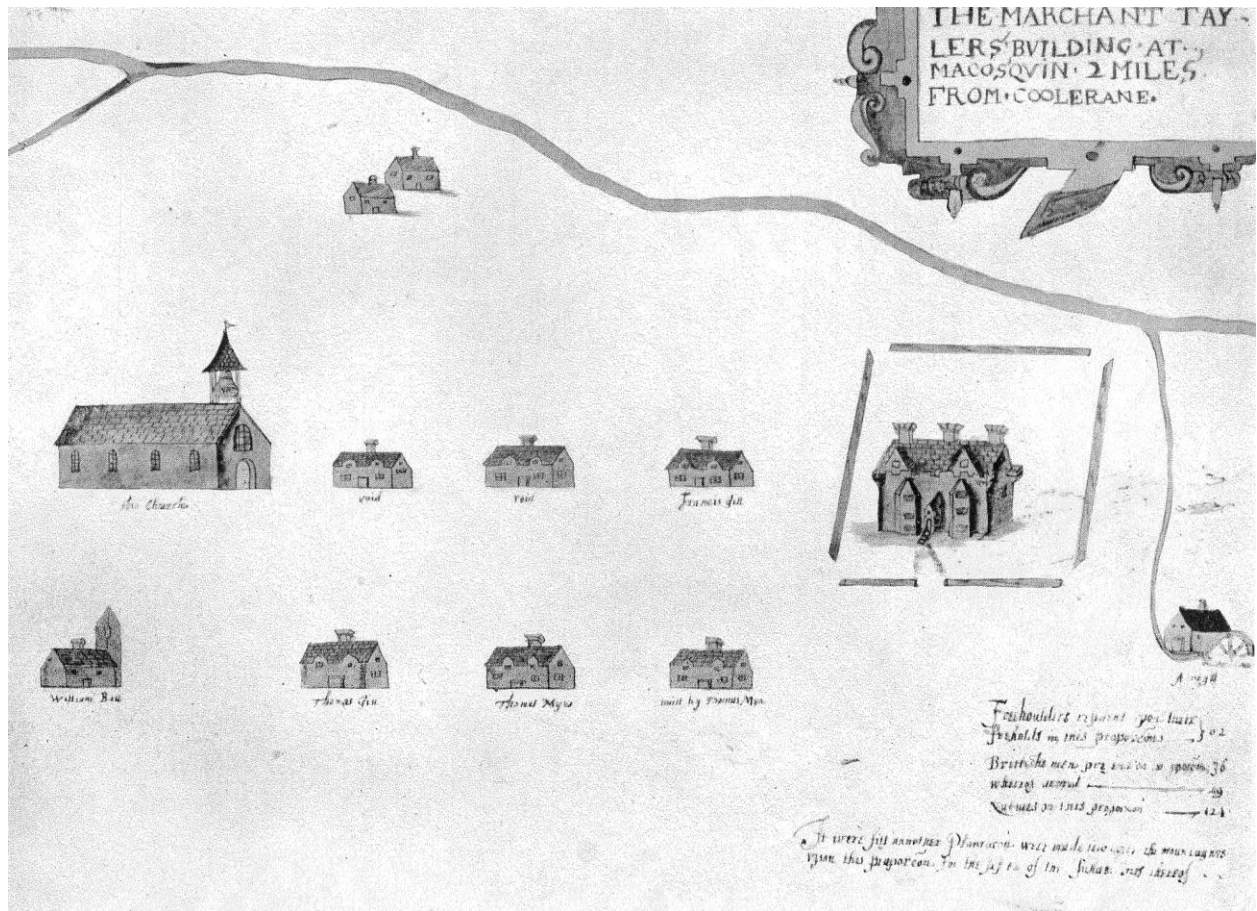 THE·MARCHANT TAY-
LERS BVILDING·AT·
MACOSQVIN· 2 MILES
FROM·COOLERANE·
the Church
void
void
Francis Gill
William Bell
Thomas Gill
Thomas Myns
built by Thomas
A mill
Freehoulders resident upon their
freholds in this proporcõn 02
Brittishe men 36
whereof armed
Natives on this proporcon 124
It were fitt annother Plantacõn were made
vpon this proporcõn for the of the thereof